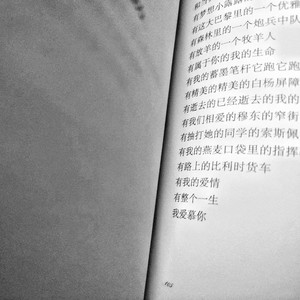 有梦想小露露的
有这大巴黎里的一个优雅
有森林里的一个炮兵中队
有放羊的一个牧羊人
有属于你的我的生命
有我的蓄墨笔杆它跑它跑
有精美的精美的白杨屏障
有逝去的已经逝去的我的
有我们相爱的穆东的窄街
有抽打她的同学的索斯佩
有我的燕麦口袋里的指挥
有路上的比利时货车
有我的爱情
有整个一生
我爱慕你